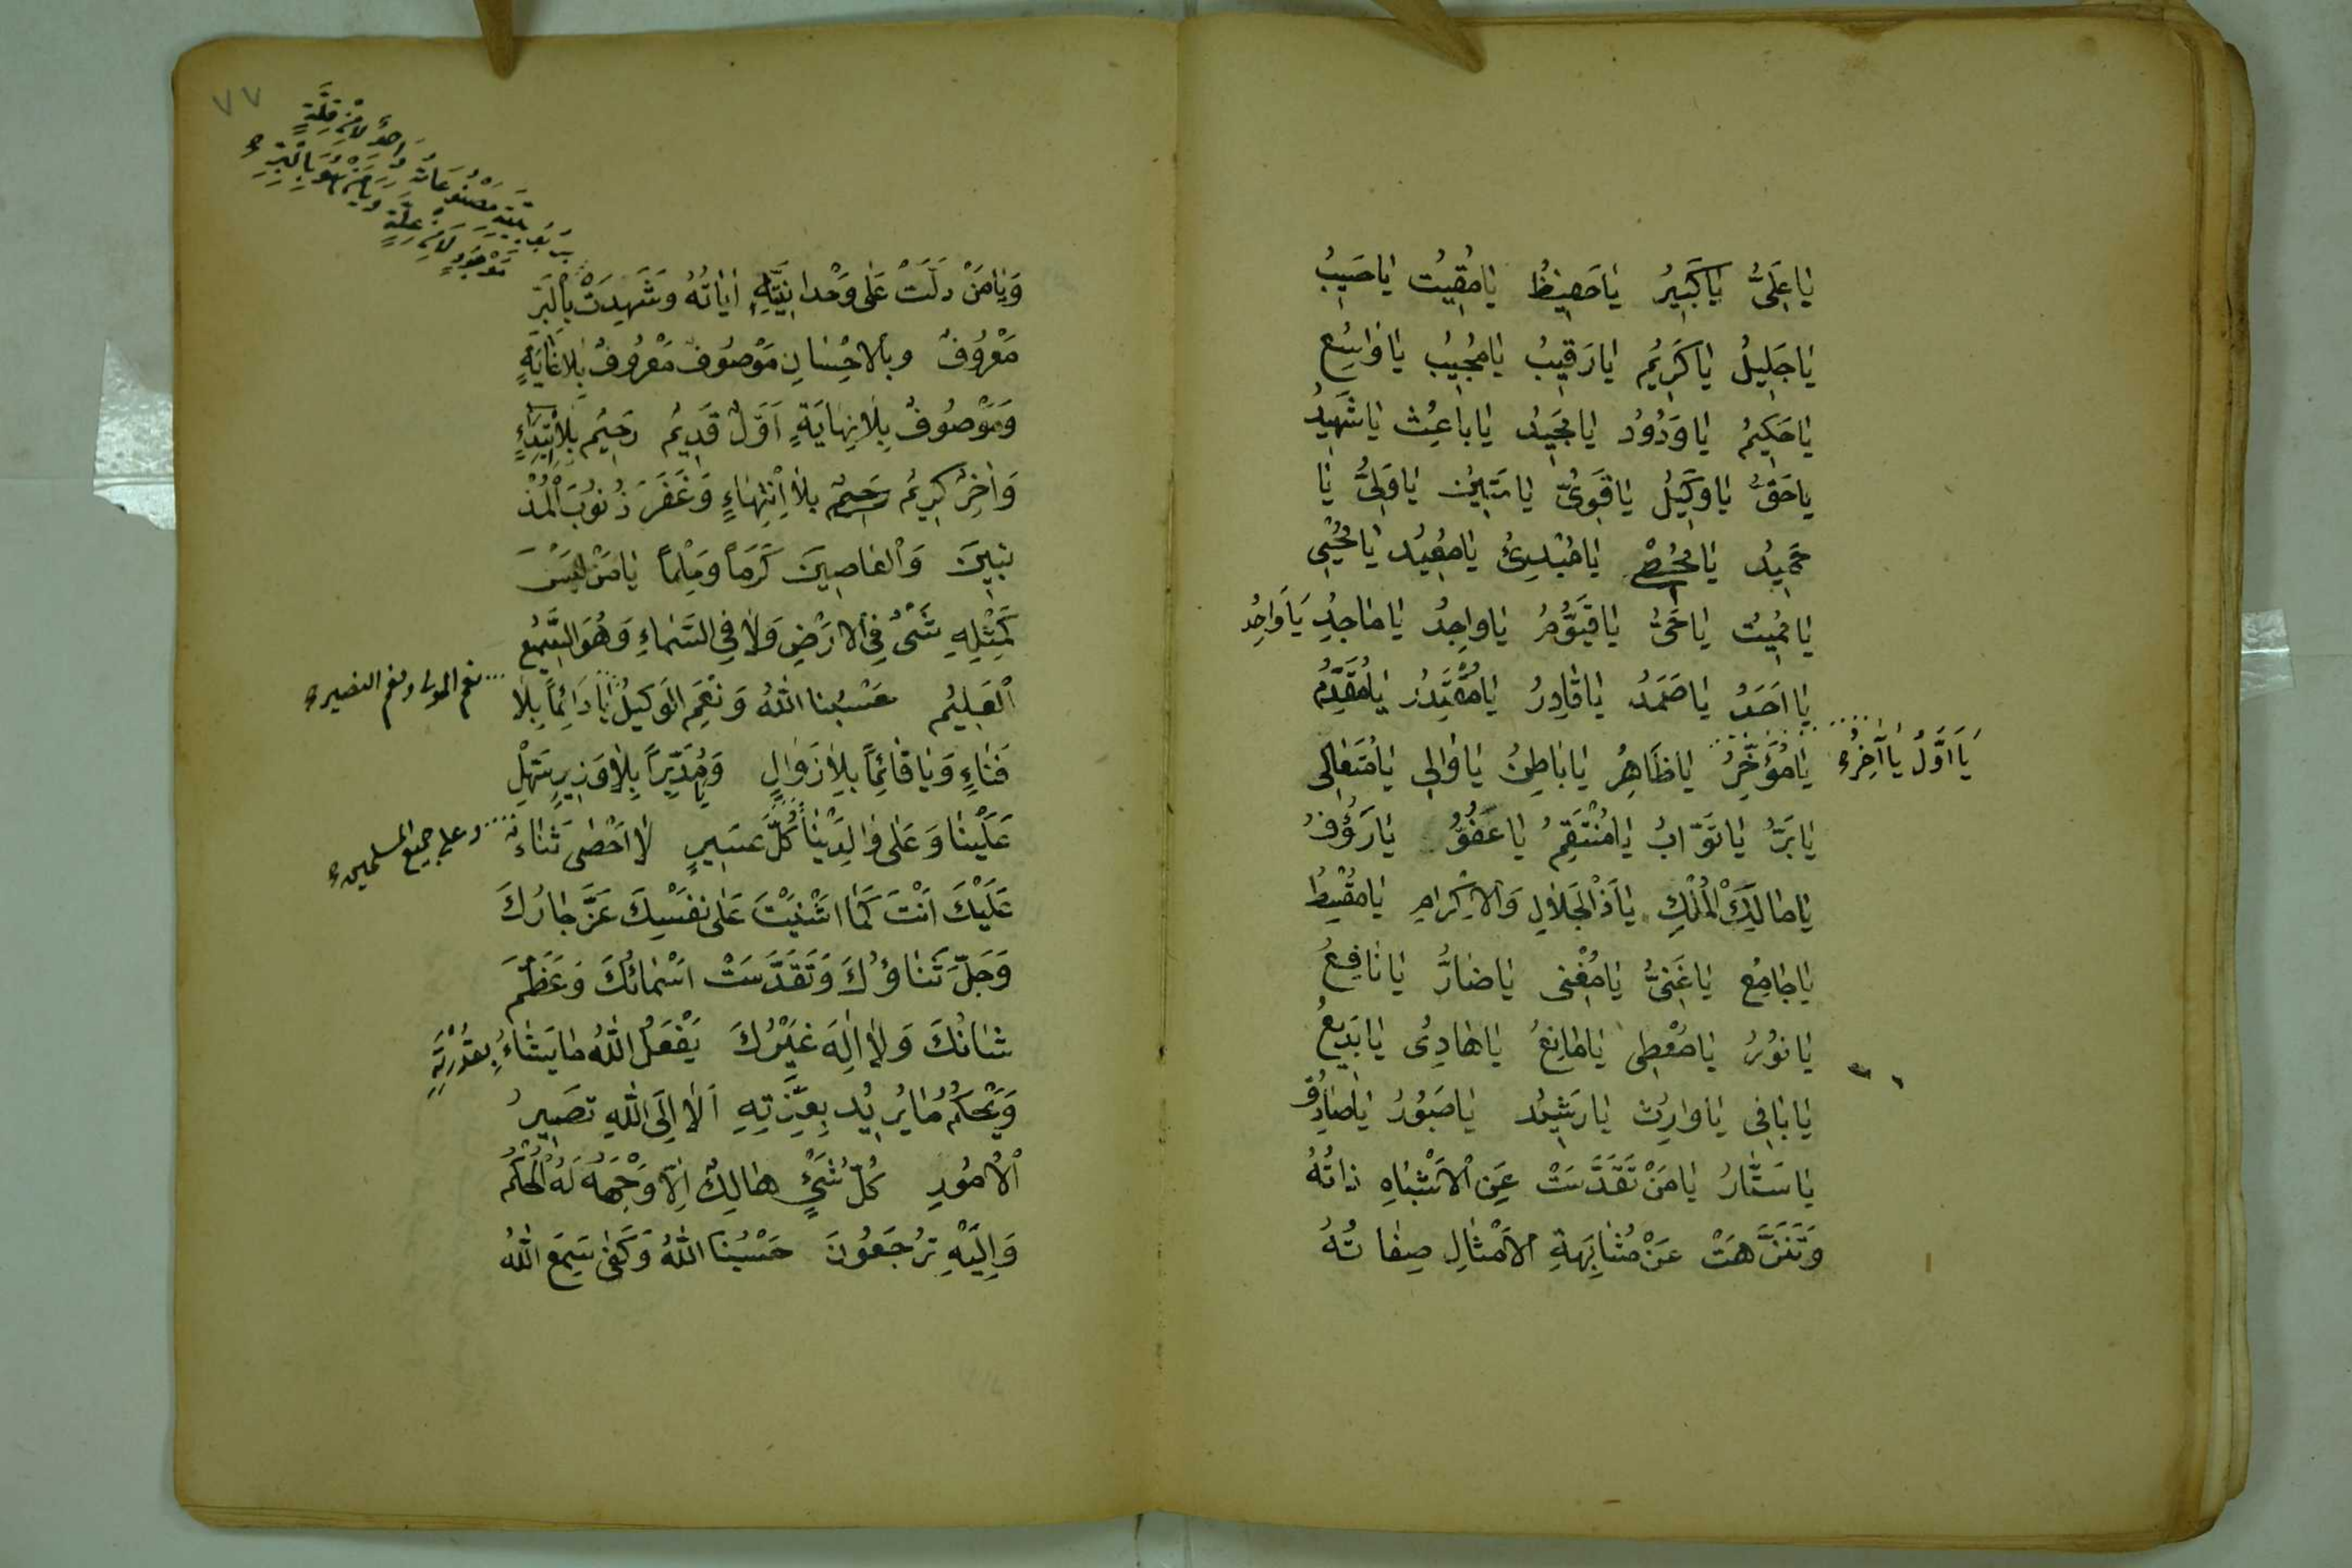 يَا عَلِيُّ يَا كَبِيرُ يَا حَفِيظُ يَا مُقِيتُ يَا حَسِيبُ
يَا جَلِيلُ يَا كَرِيمُ يَا رَقِيبُ يَا مُجِيبُ يَا وَاسِعُ
يَا حَكِيمُ يَا وَدُودُ يَا مَجِيدُ يَا بَاعِثُ يَا شَهِيدُ
يَا حَقُّ يَا وَكِيلُ يَا قَوِيُّ يَا مَتِينُ يَا وَلِيُّ يَا
حَمِيدُ يَا مُحْصِي يَا مُبْدِئُ يَا مُعِيدُ يَا مُحْيِي
يَا مُمِيتُ يَا حَيُّ يَا قَيُّومُ يَا وَاجِدُ يَا مَاجِدُ يَا وَاحِدُ
يَا اَحَدُ يَا صَمَدُ يَا قَادِرُ يَا مُقْتَدِرُ يَا مُقَدِّمُ
يَا مُؤَخِّرُ يَا ظَاهِرُ يَا بَاطِنُ يَا وَالِي يَا مُتَعَالِي
يَا اَوَّلُ يَا آخِرُ
يَا بَرُّ يَا تَوَّابُ يَا مُنْتَقِمُ يَا عَفُوُّ يَا رَؤُفُ
يَا مَالِكَ الْمُلْكِ يَا ذَا الْجَلَالِ وَالْاِكْرَامِ يَا مُقْسِطُ
يَا جَامِعُ يَا غَنِيُّ يَا مُغْنِي يَا ضَارُّ يَا نَافِعُ
يَا نُورُ يَا مُعْطِي يَا مَانِعُ يَا هَادِي يَا بَدِيعُ
يَا بَاقِي يَا وَارِثُ يَا رَشِيدُ يَا صَبُورُ يَا صَادِقُ
يَا سَتَّارُ يَا مَنْ تَقَدَّسَتْ عَنِ الْاَشْبَاهِ ذَاتُهُ
وَتَنَزَّهَتْ عَنْ مُشَابَهَةِ الْاَمْثَالِ صِفَاتُهُ
٧٧
وَاحِدٌ لَا مِنْ قِلَّةٍ
بِرُبُوبِيَّتِهِ مَصْنُوعَاتُهُ
مَوْجُودٌ لَا مِنْ عِلَّةٍ وَيَا مَنْ هُوَ بِالْبِرِّ
وَيَا مَنْ دَلَّتْ عَلَى وَحْدَانِيَّتِهِ اٰيَاتُهُ وَشَهِدَتْ بِالْبَرِّ
مَعْرُوفٌ وَبِالْاِحْسَانِ مَوْصُوفٌ مَعْرُوفٌ بِلَا غَايَةٍ
وَمَوْصُوفٌ بِلَا نِهَايَةٍ اَوَّلٌ قَدِيمٌ رَحِيمٌ بِلَا ابْتِدَاءٍ
وَاٰخِرٌ كَرِيمٌ رَحِيمٌ بِلَا اِنْتِهَاءٍ وَغَفَرَ ذُنُوبَ الْمُذْ
نِبِينَ وَالْعَاصِينَ كَرَمًا وَحِلْمًا يَا مَنْ لَيْسَ
كَمِثْلِهِ شَيْءٌ فِي الْاَرْضِ وَلَا فِي السَّمَاءِ وَهُوَ السَّمِيعُ
الْعَلِيمُ حَسْبُنَا اللّٰهُ وَنِعْمَ الْوَكِيلُ يَا دَائِمًا بِلَا
نعم المولى ونعم النصير
فَنَاءٍ وَيَا قَائِمًا بِلَا زَوَالٍ وَيَا مُدَبِّرًا بِلَا وَزِيرٍ سَهِّلْ
عَلَيْنَا وَعَلَى وَالِدَيْنَا كُلَّ عَسِيرٍ لَا اُحْصِي ثَنَاءً
وعلى جميع المسلمين
عَلَيْكَ اَنْتَ كَمَا اَثْنَيْتَ عَلَى نَفْسِكَ عَزَّ جَارُكَ
وَجَلَّ ثَنَاؤُكَ وَتَقَدَّسَتْ اَسْمَائُكَ وَعَظُمَ
شَانُكَ وَلَا اِلٰهَ غَيْرُكَ يَفْعَلُ اللّٰهُ مَا يَشَاءُ بِقُدْرَتِهِ
وَيَحْكُمُ مَا يُرِيدُ بِعِزَّتِهِ اَلَا اِلَى اللّٰهِ تَصِيرُ
الْاُمُورُ كُلُّ شَيْءٍ هَالِكٌ اِلَّا وَجْهَهُ لَهُ الْحُكْمُ
وَاِلَيْهِ تُرْجَعُونَ حَسْبُنَا اللّٰهُ وَكَفٰى سَمِعَ اللّٰهُ